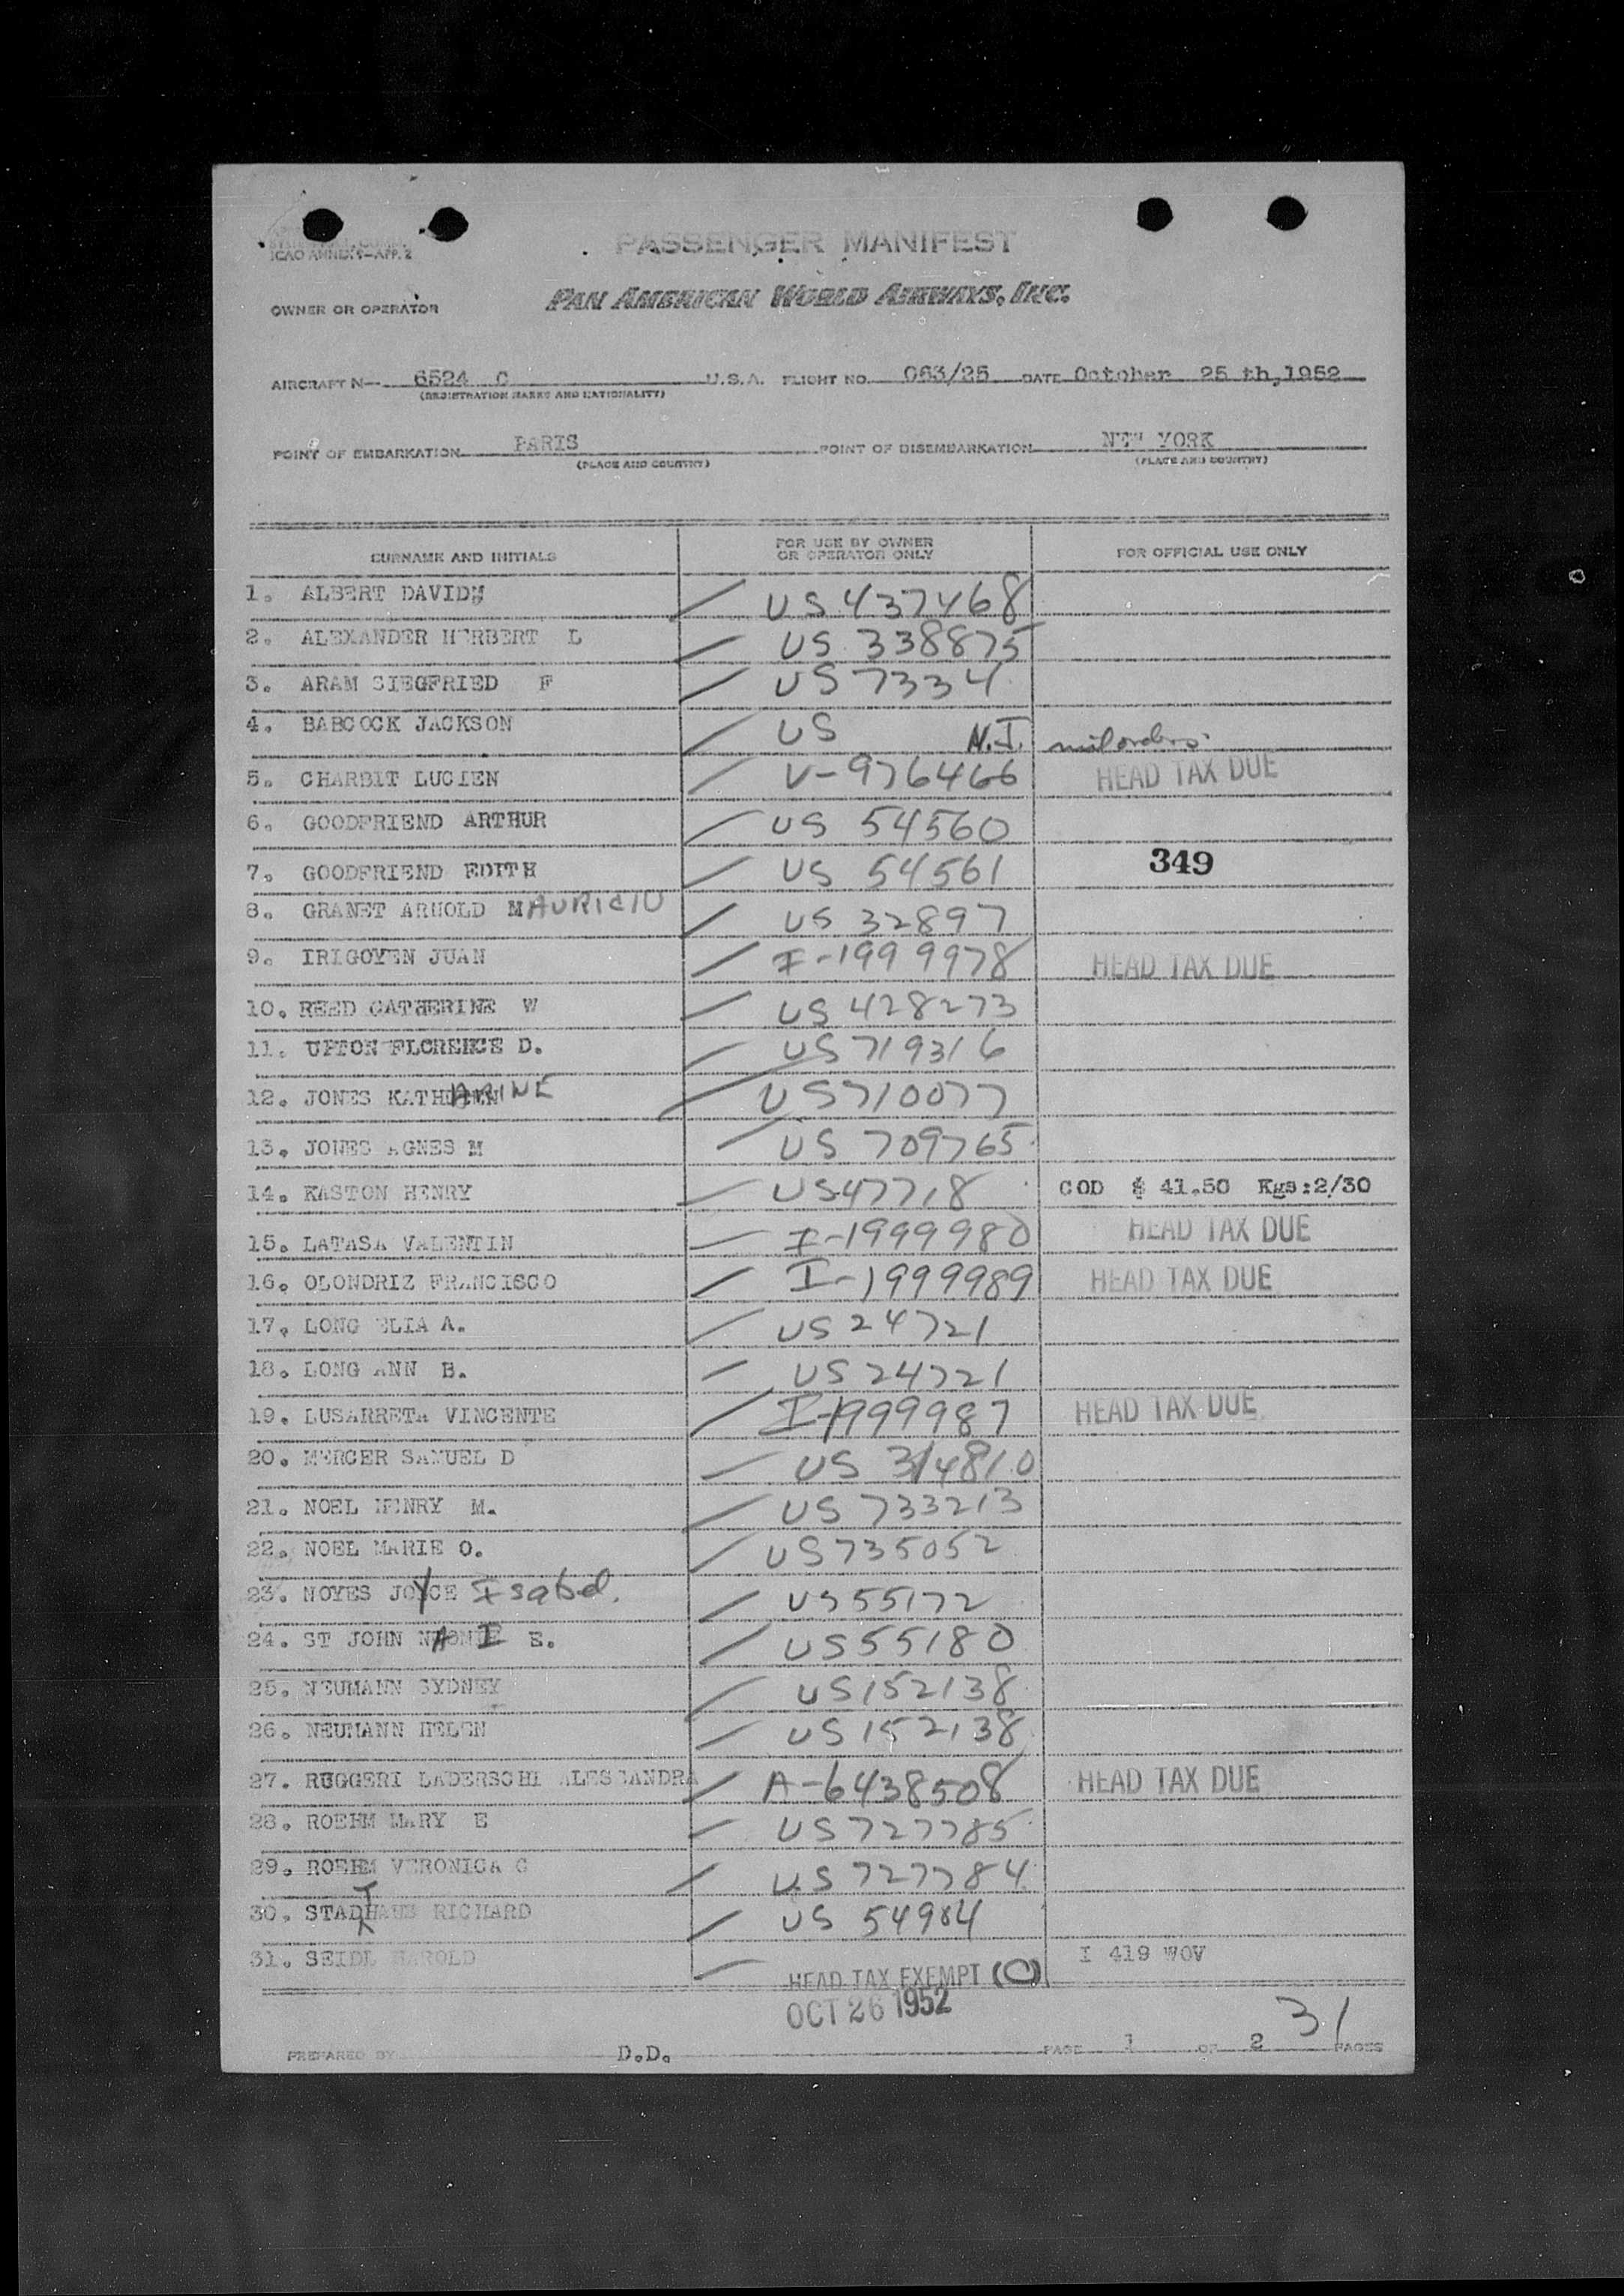 ICAO ANNEX 9-APP. 2
PASSENGER MANIFEST
OWNER OR OPERATOR PAN AMERICAN WORLD AIRWAYS, INC.
AIRCRAFT N- 6524 C U.S.A. FLIGHT NO. 063/25 DATE October 25 th, 1952
(REGISTRATION MARKS AND NATIONALITY)
POINT OF EMBARKATION PARIS POINT OF DISEMBARKATION NEW YORK
(PLACE AND COUNTRY) (PLACE AND COUNTRY)
SURNAME AND INITIALS FOR USE BY OWNER OR OPERATOR ONLY FOR OFFICIAL USE ONLY
1. ALBERT DAVID US 437468
2. ALEXANDER HERBERT L US 338875
3. ARAM SIEGFRIED F US 7334
4. BABCOCK JACKSON US N.I. mil orders
5. CHARBIT LUCIEN V-976466 HEAD TAX DUE
6. GOODFRIEND ARTHUR US 54560
7. GOODFRIEND EDITH US 54561 349
8. GRANET ARNOLD MAURICIO US 32897
9. IRIGOYEN JUAN I-1999978 HEAD TAX DUE
10. REED CATHERINE W US 428273
11. UPTON FLORENCE D. US 719316
12. JONES KATHARINE US 710077
13. JONES AGNES M US 709765
14. KASTON HENRY US 47718 COD $ 41.50 Kgs:2/30
15. LATASA VALENTIN I-1999980 HEAD TAX DUE
16. OLONDRIZ FRANCISCO I-1999989 HEAD TAX DUE
17. LONG ELIA A. US 24721
18. LONG ANN B. US 24721
19. LUSARRETA VINCENTE I-1999987 HEAD TAX DUE
20. MERCER SAMUEL D US 314810
21. NOEL HENRY M. US 733213
22. NOEL MARIE O. US 735052
23. NOYES JOYCE Isabel. US 55172
24. ST JOHN NAOMI E. US 55180
25. NEUMANN SYDNEY US 152138
26. NEUMANN HELEN US 152138
27. RUGGERI LADERSCHI ALESSANDRA A-6438508 HEAD TAX DUE
28. ROEHM MARY E US 727785
29. ROEHM VERONICA C US 727784
30. RICHARD US 54984
31. SEIDL HAROLD HEAD TAX EXEMPT (C) I 419 WOV
OCT 26 1952
31
PREPARED BY D.D. PAGE 1 OF 2 PAGES